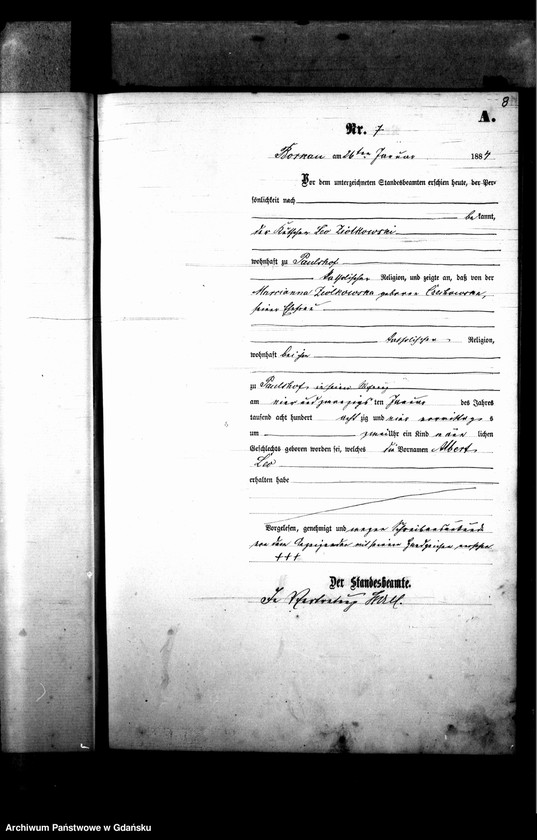 8
A.
Nr. 7
Bornau am 26ten Januar 1884
Vor dem unterzeichneten Standesbeamten erschien heute, der Per-
sönlichkeit nach
bekannt,
der Kutscher Leo Ziolkowski
wohnhaft zu Paulshof
katholischer Religion, und zeigte an, daß von der
Marcianna Ziolkowska geborene
seiner Ehefrau
katholischer Religion,
wohnhaft bei ihm
zu Paulshof, in seiner Wohnung
am vier und zwanzigsten Januar des Jahres
tausend acht hundert achtzig und vier vormittags
um zwei Uhr ein Kind männlichen
Geschlechts geboren worden sei, welches die Vornamen Albert,
Leo
erhalten habe
Vorgelesen, genehmigt und wegen Schreibensunkunde
von dem Anzeigenden mit seinem Handzeichen versehen
+++
Der Standesbeamte.
In Vertretung
Archiwum Państwowe w Gdańsku